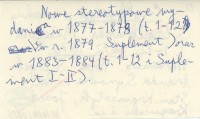 Nowe stereotypowe wy-
danie w 1877-1878 (t. 1-12)
w r. 1879 Suplement) oraz
w 1883-1884 (t. 1-12 i Suple-
ment I-II).